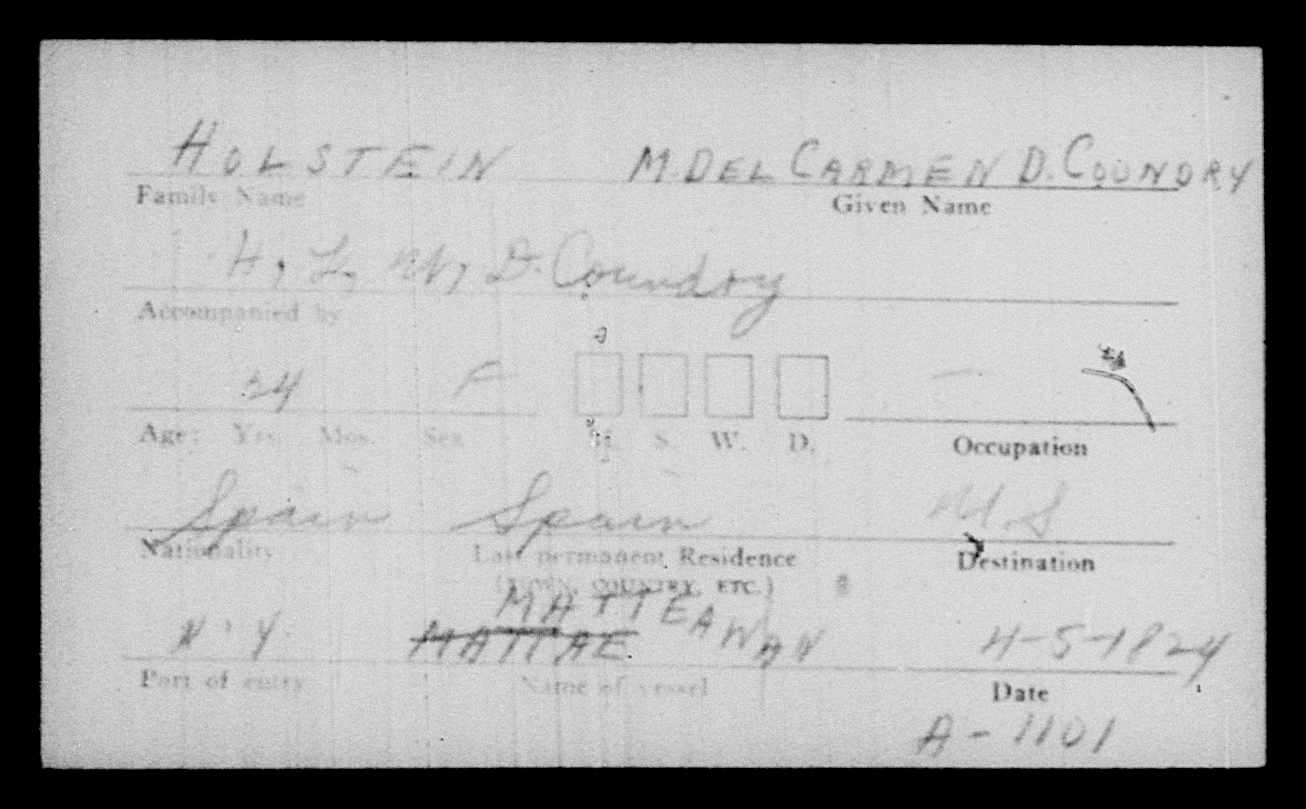 HOLSTEIN M. DEL CARMEN D. COUNDRY
Family Name Given Name
H, L, W, D. Coundry
Accompanied by
24 F —
Age: Yrs. Mos. Sex M. S. W. D. Occupation
Spain Spain U S
Nationality Last permanent Residence Destination
(TOWN, COUNTRY, ETC.)
MATTEAWAN
N. Y. MATTAE 4-5-1824
Port of entry Name of vessel Date
A-1101